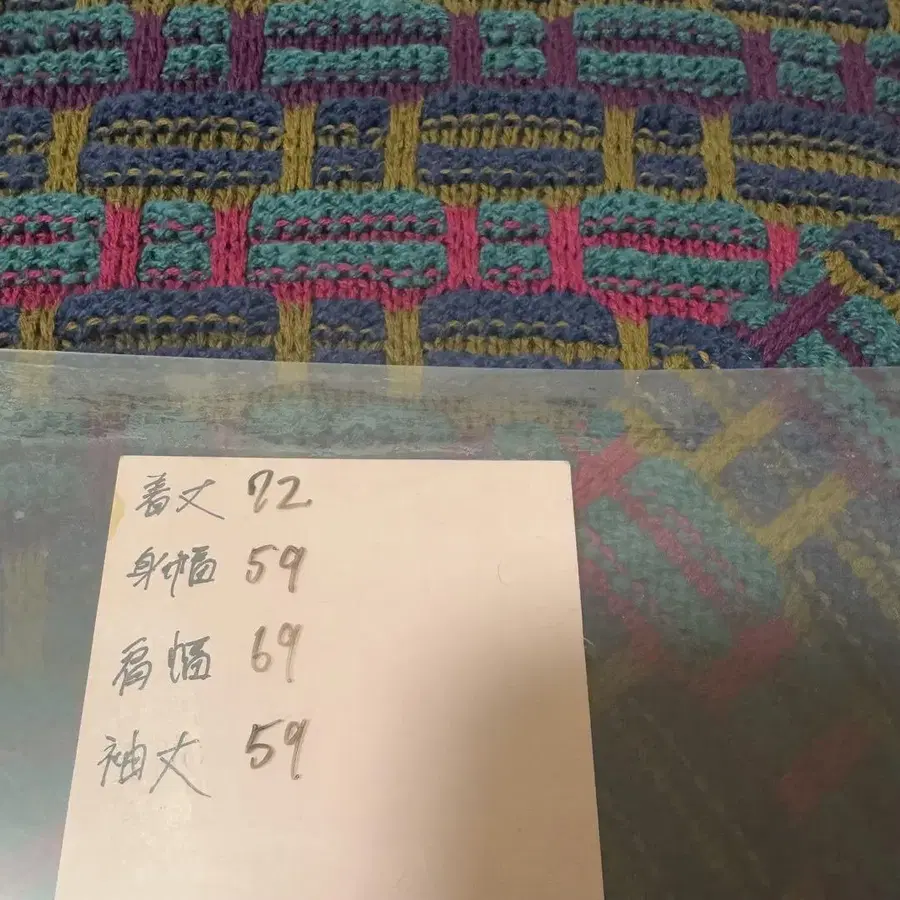 着丈 72
身幅 59
肩幅 69
袖丈 59